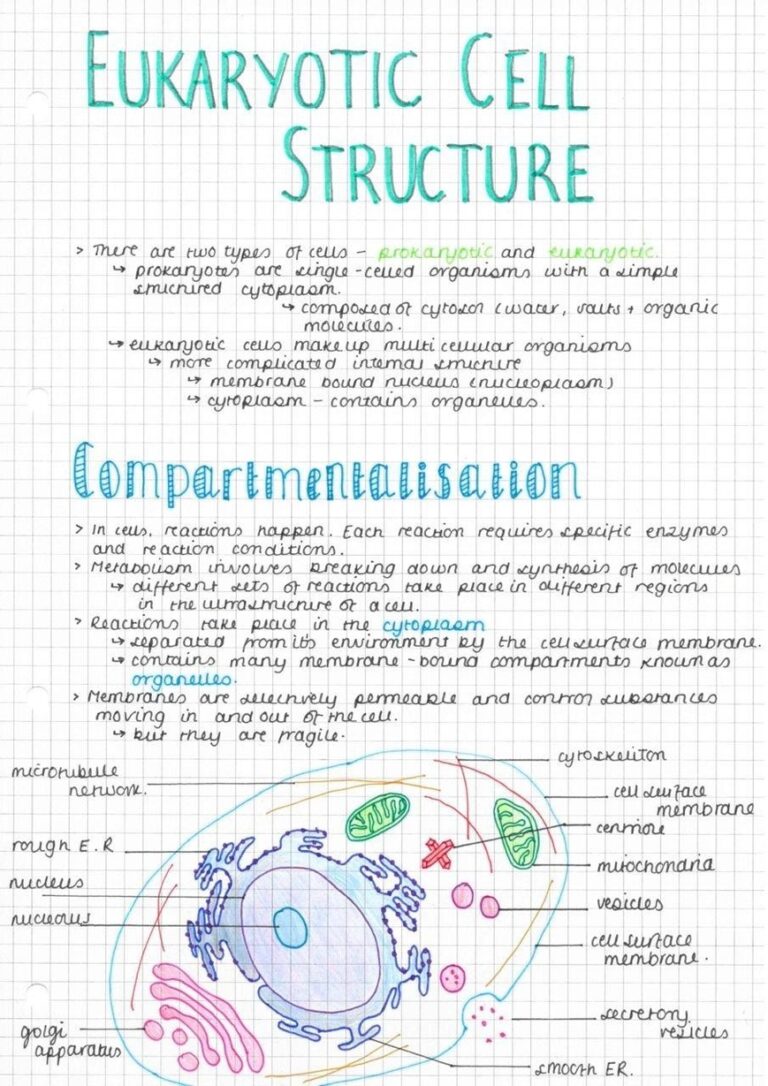 EUKARYOTIC CELL
STRUCTURE
> There are two types of cells - prokaryotic and eukaryotic.
↳ prokaryotes are single-celled organisms with a simple
structured cytoplasm.
↳ composed of cytosol (water, salts + organic
molecules.
↳ eukaryotic cells make up multicellular organisms
↳ more complicated internal structure
↳ membrane bound nucleus (nucleoplasm)
↳ cytoplasm - contains organelles.
Compartmentalisation
> In cells, reactions happen. Each reaction requires specific enzymes
and reaction conditions.
> Metabolism involves breaking down and synthesis of molecules
↳ different sets of reactions take place in different regions
in the ultrastructure of a cell.
> Reactions take place in the cytoplasm
↳ separated from its environment by the cell surface membrane.
↳ contains many membrane-bound compartments known as
organelles.
> Membranes are selectively permeable and control substances
moving in and out of the cell.
↳ but they are fragile.
microtubule
network.
cytoskeliton
cell surface
membrane
centriole
rough E.R
mitochondria
nucleus
vesicles
nucleolus
cell surface
membrane.
secretory
vesicles
golgi
apparatus
smooth ER.